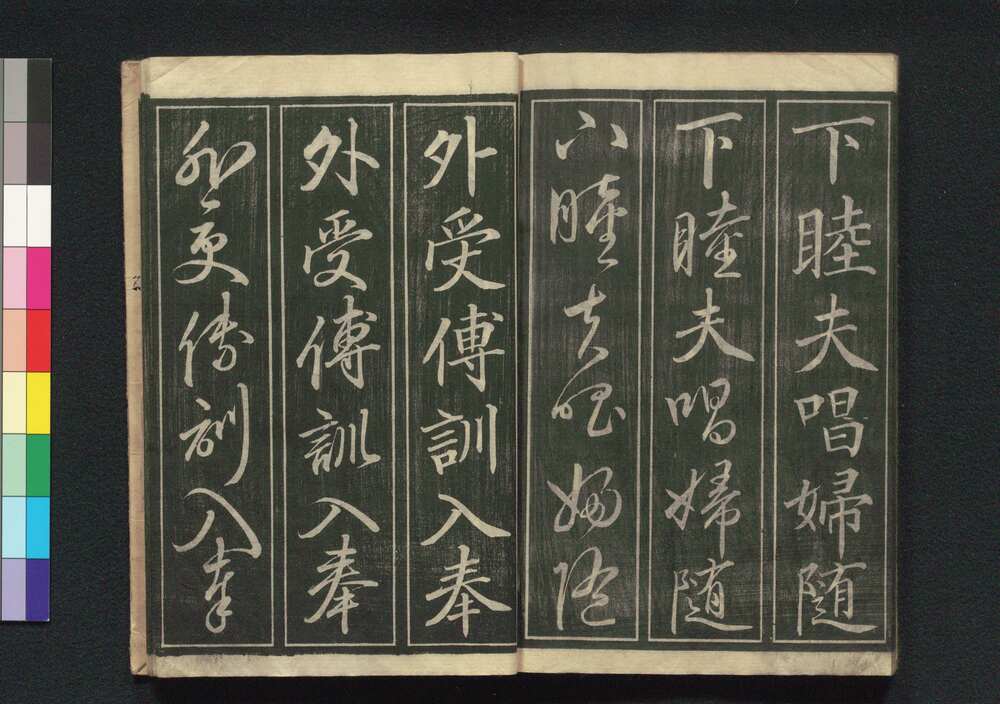 下睦夫唱婦随
下睦夫唱婦随
下睦夫唱婦随
外受傅訓入奉
外受傅訓入奉
外受傅訓入奉